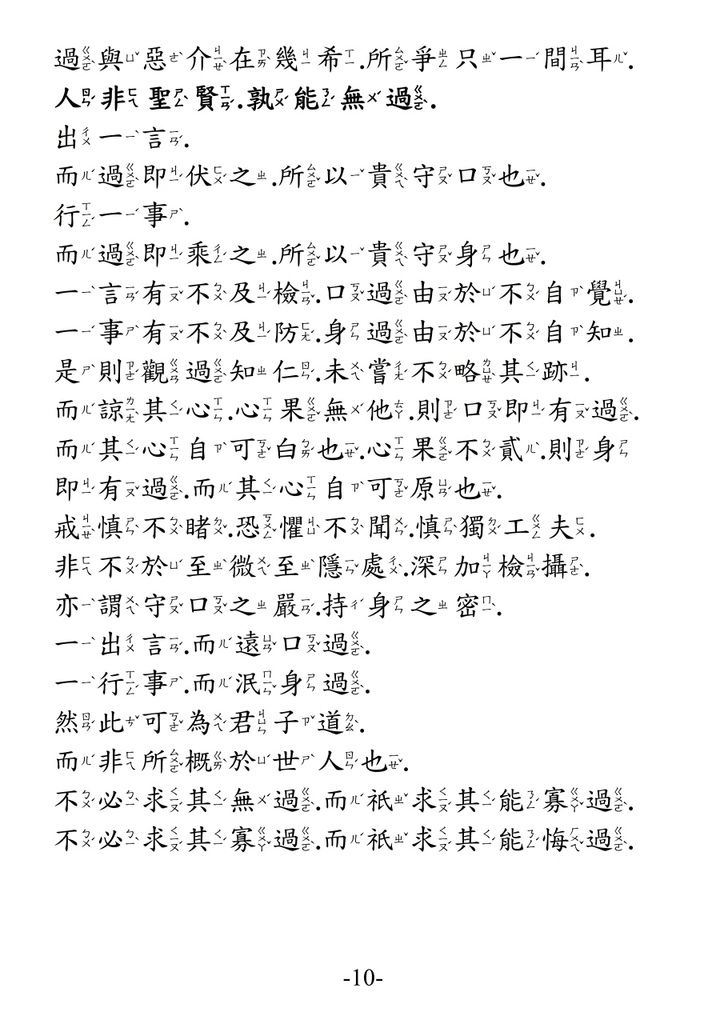 過與惡介在幾希.所爭只一間耳.
人非聖賢.孰能無過.
出一言.
而過即伏之.所以貴守口也.
行一事.
而過即乘之.所以貴守身也.
一言有不及檢.口過由於不自覺.
一事有不及防.身過由於不自知.
是則觀過知仁.未嘗不略其跡.
而諒其心.心果無他.則口即有過.
而其心自可白也.心果不貳.則身
即有過.而其心自可原也.
戒慎不睹.恐懼不聞.慎獨工夫.
非不於至微至隱處.深加檢攝.
亦謂守口之嚴.持身之密.
一出言.而遠口過.
一行事.而泯身過.
然此可為君子道.
而非所概於世人也.
不必求其無過.而祇求其能寡過.
不必求其寡過.而祇求其能悔過.
-10-